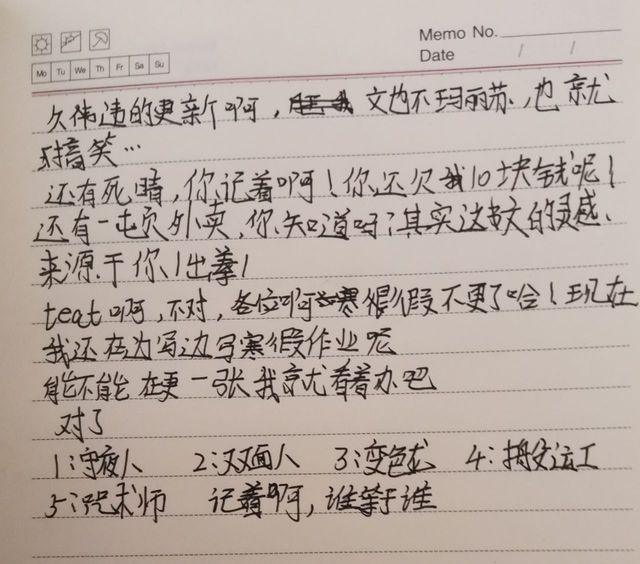 Memo No.
Date / /
Mo Tu We Th Fr Sa Su
久违的更新个啊, 文也不玛丽苏,也就
搞笑…
还有死晴,你记着啊!你还欠我10块钱呢!
还有一屯页外卖,你知道吗?其实这文的灵感、
来源于你!出拳!
teat啊,不对,各位啊寒假不更了哈!现在
我还在为写边写寒假作业呢
能不能在更一张我就看着办吧
对了
1:守夜人 2:双面人 3:变色龙 4:搬运工
5:咒术师 记着啊,谁等于谁